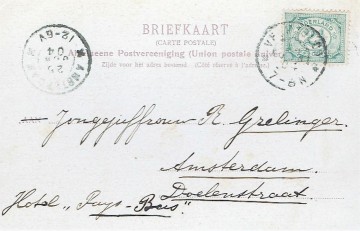 BRIEFKAART
(CARTE POSTALE)
Algemeene Postvereeniging (Union postale universelle)
Zijde voor het adres bestemd. (Côté réservé à l'adresse.)
NEDERLAND
12-6V
25
04
AMSTERDAM
7-8N
Jongejuffrouw R. Grelinger.
Amsterdam.
Doelenstraat.
Hotel „Pays-Bas".